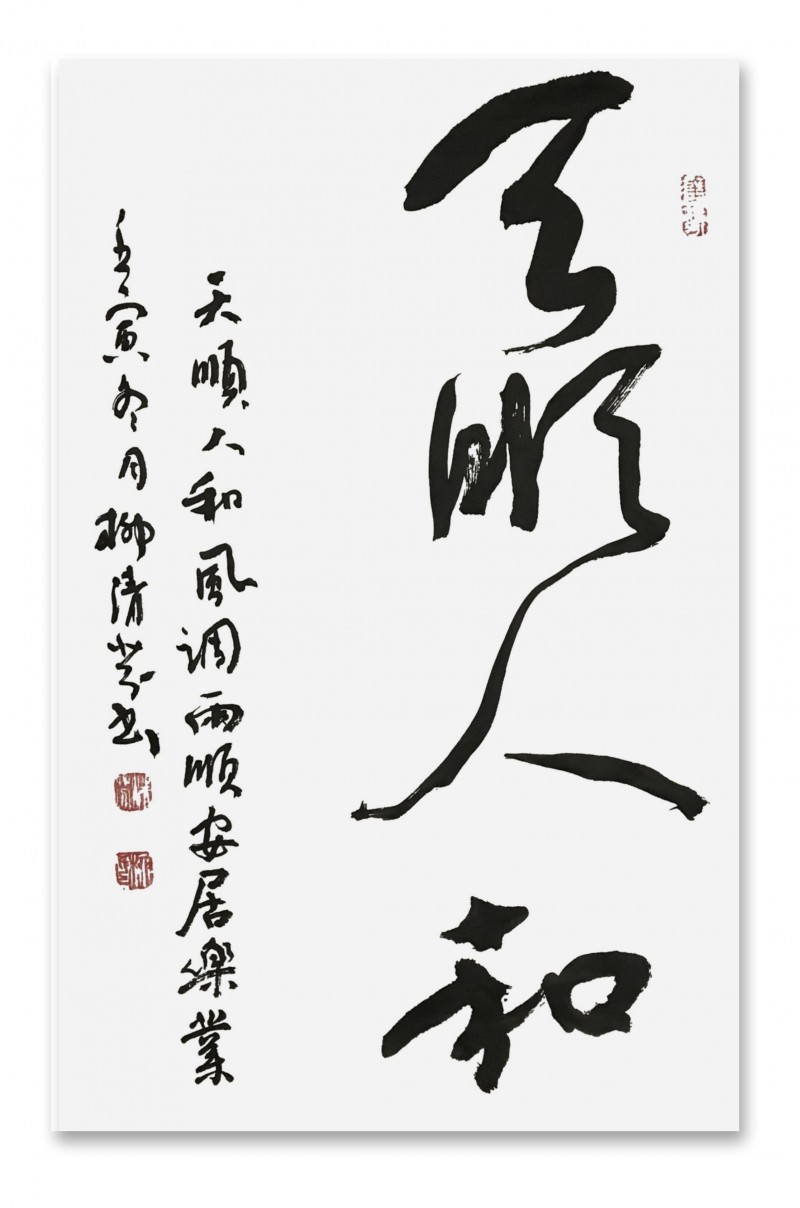 天順人和
天順人和風調雨順安居樂業
壬寅冬月柳清芬書